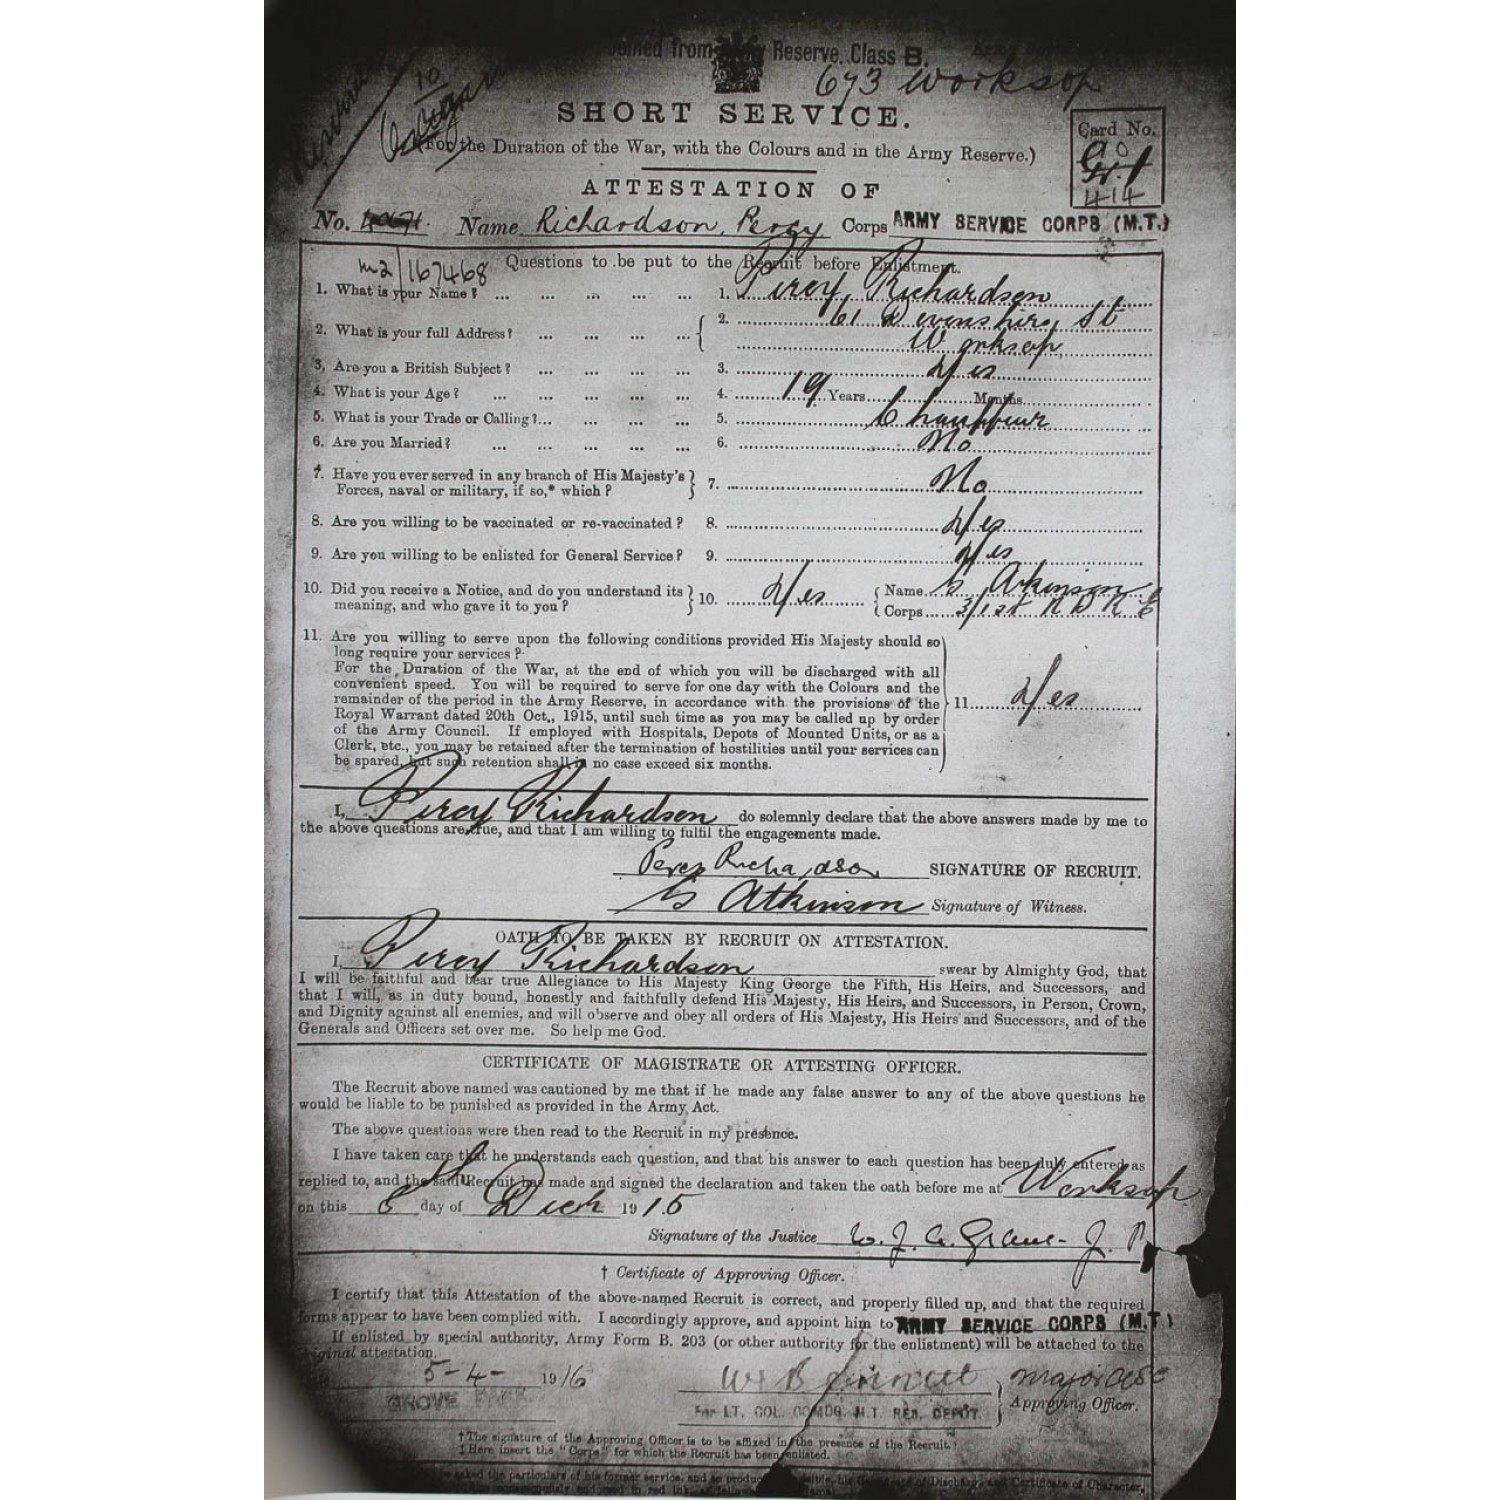 Joined from Army Reserve, Class B.
673 Worksop
10
SHORT SERVICE.
(For the Duration of the War, with the Colours and in the Army Reserve.)
Card No.
414
ATTESTATION OF
No. Name Richardson, Percy Corps ARMY SERVICE CORPS (M.T.)
m2/167468 Questions to be put to the Recruit before Enlistment.
1. What is your Name? ... ... ... ... ... 1. Percy Richardson
2. What is your full Address? ... ... ... ... { 2. 61 Devonshire St
Worksop
3. Are you a British Subject? ... ... ... ... 3. Yes
4. What is your Age? ... ... ... ... ... 4. 19 Years Months
5. What is your Trade or Calling?... ... ... ... 5. Chauffeur
6. Are you Married? ... ... ... ... ... 6. No
7. Have you ever served in any branch of His Majesty's } 7. No
Forces, naval or military, if so,* which?
8. Are you willing to be vaccinated or re-vaccinated? 8. Yes
9. Are you willing to be enlisted for General Service? 9. Yes
10. Did you receive a Notice, and do you understand its } 10. Yes { Name Atkinson
meaning, and who gave it to you? { Corps 3/1st
11. Are you willing to serve upon the following conditions provided His Majesty should so
long require your services?
For the Duration of the War, at the end of which you will be discharged with all
convenient speed. You will be required to serve for one day with the Colours and the
remainder of the period in the Army Reserve, in accordance with the provisions of the } 11. Yes
Royal Warrant dated 20th Oct., 1915, until such time as you may be called up by order
of the Army Council. If employed with Hospitals, Depots of Mounted Units, or as a
Clerk, etc., you may be retained after the termination of hostilities until your services can
be spared, but such retention shall in no case exceed six months.
I, Percy Richardson do solemnly declare that the above answers made by me to
the above questions are true, and that I am willing to fulfil the engagements made.
Percy Richardson SIGNATURE OF RECRUIT.
G Atkinson Signature of Witness.
OATH TO BE TAKEN BY RECRUIT ON ATTESTATION.
I, Percy Richardson swear by Almighty God, that
I will be faithful and bear true Allegiance to His Majesty King George the Fifth, His Heirs, and Successors, and
that I will, as in duty bound, honestly and faithfully defend His Majesty, His Heirs, and Successors, in Person, Crown,
and Dignity against all enemies, and will observe and obey all orders of His Majesty, His Heirs and Successors, and of the
Generals and Officers set over me. So help me God.
CERTIFICATE OF MAGISTRATE OR ATTESTING OFFICER.
The Recruit above named was cautioned by me that if he made any false answer to any of the above questions he
would be liable to be punished as provided in the Army Act.
The above questions were then read to the Recruit in my presence.
I have taken care that he understands each question, and that his answer to each question has been duly entered as
replied to, and the said Recruit has made and signed the declaration and taken the oath before me at Worksop
on this 8th day of Decr 1915
Signature of the Justice J. P.
† Certificate of Approving Officer.
I certify that this Attestation of the above-named Recruit is correct, and properly filled up, and that the required
forms appear to have been complied with. I accordingly approve, and appoint him to ARMY SERVICE CORPS (M.T.)
If enlisted by special authority, Army Form B. 203 (or other authority for the enlistment) will be attached to the
original attestation.
5-4- 1916 Major ASC
GROVE PARK FOR LT. COL. COMDG. M.T. RES. DEPOT. Approving Officer.
†The signature of the Approving Officer is to be affixed in the presence of the Recruit.
‡Here insert the "Corps" for which the Recruit has been enlisted.
asked the particulars of his former service, and to produce